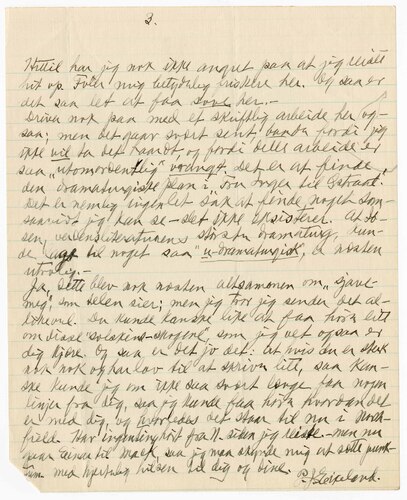 3.
Hittil har jeg nok ikke angret paa at jeg reiste
hit op. Føler mig betydelig friskere her. Og saa er
det saa let at faa sove her.—
Driver nok paa med et skriftlig arbeide her og-
saa; men det gaar svært sent baade fordi jeg
ikke vil ta det haardt, og fordi dette arbeide er
saa "utomordentlig" vrangt. Det er at finde
den dramaturgiske plan i "Fru Inger til Østraat."
Det er nemlig ingen let sak at finde noget som—
saavidt jeg kan se— slet ikke eksisterer. At Ib-
sen, verdensliteraturens største dramaturg, kun-
de lage til noget saa "u-dramaturgisk", er næsten
utrolig.—
Ja, dette blev nok næsten altsammen om
mig", som delen sier; men jeg tror jeg sender det al-
likevel. Du kunde kanske like at faa høre litt
om disse "solskins-skogene", som jeg vet ogsaa er
dig kjære. Og saa er det jo det: at hvis du er sterk
nok nok og har lov til at skrive litt, saa kan-
ske kunde jeg om ikke saa svært længe faa nogen
linjer fra dig, saa jeg kunde faa høre hvordan det
er med dig, og hvorledes det staar til nu i North-
field. Har ingenting hørt fra N. siden jeg reiste— men nu
gaar denne til mark, saa jeg maa skynde mig at sætte punk-
tum med hjertelig hilsen til dig og dine.